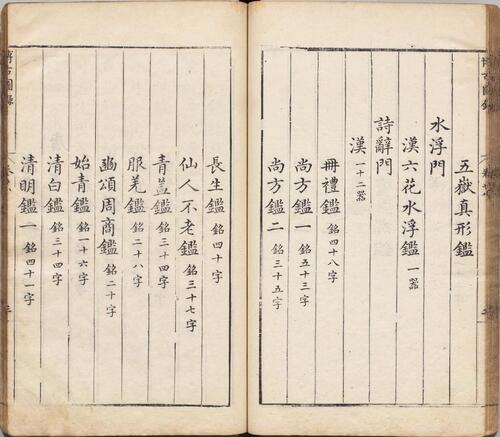 五嶽真形鑑
水浮門
漢六花水浮鑑 一器
詩辭門
漢 一十二器
冊禮鑑 銘四十八字
尚方鑑一 銘五十三字
尚方鑑二 銘三十五字
長生鑑 銘四十字
仙人不老鑑 銘三十七字
青蓋鑑 銘三十四字
服羌鑑 銘二十八字
幽頌周商鑑 銘二十字
始青鑑 銘一十六字
清白鑑 銘三十四字
清明鑑一 銘四十一字
博古圖錄